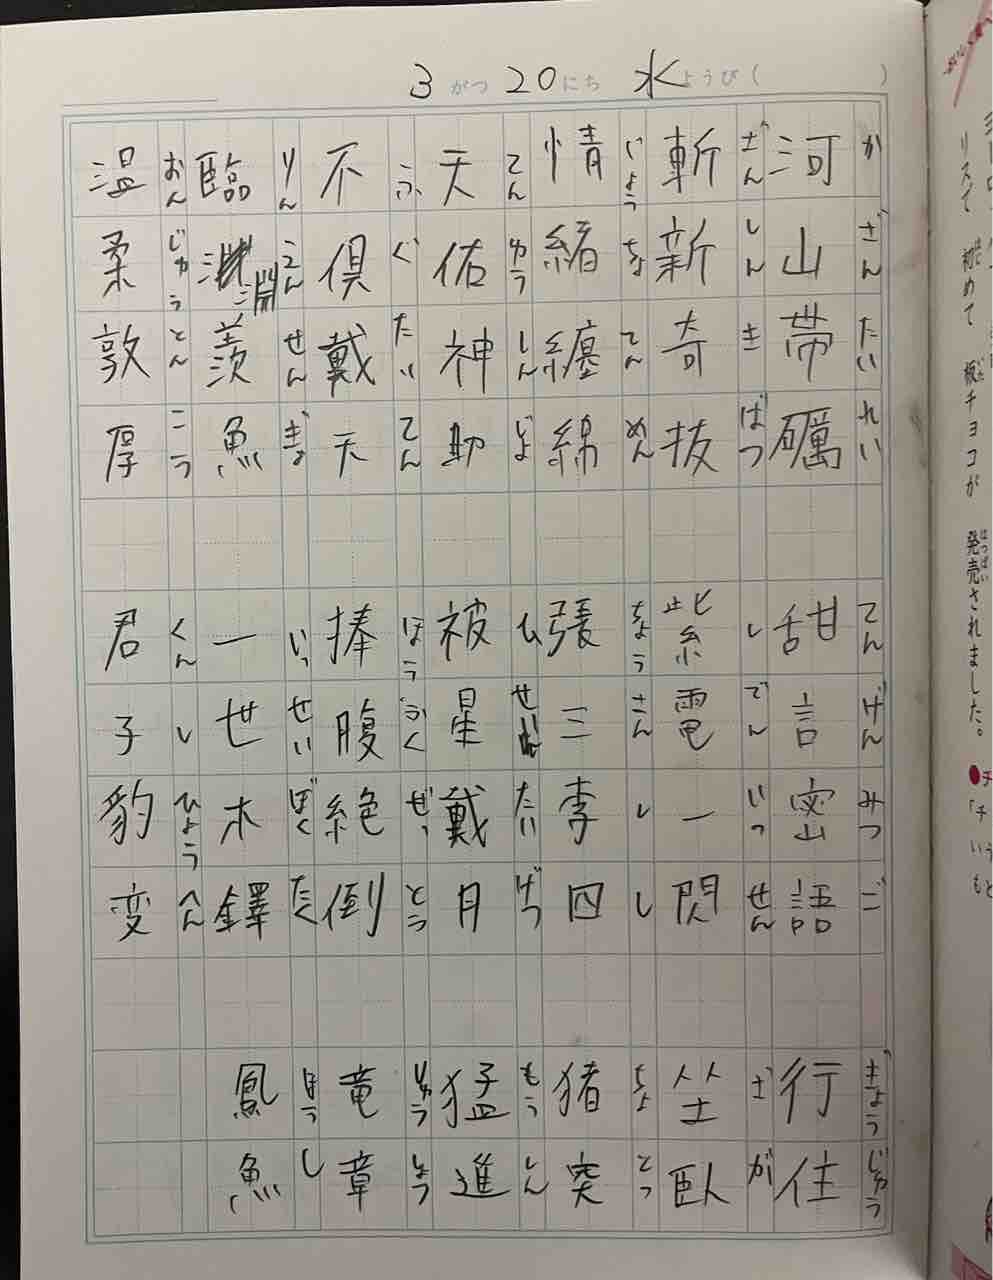 3がつ20にち水ようび( )
河山帯礪 甜言密語 行住
かざんたいれい てんげんみつご ぎょうじゅう
斬新奇抜 紫電一閃 坐臥
ざんしんきばつ しでんいっせん ざが
情緒纏綿 張三李四 猪突
じょうちょてんめん ちょうさんりし ちょとつ
天佑神助 被星戴月 猛進
てんゆうしんじょ ひせいたいげつ もうしん
不倶戴天 捧腹絶倒 竜章
ふぐたいてん ほうふくぜっとう りゅうしょう
臨淵羨魚 一世木鐸 鳳魚
りんえんせんぎょ いっせいぼくたく ほうし
温柔敦厚 君子豹変
おんじゅうとんこう くんしひょうへん
リスマ 初めて 板チョコが 発売されました。
はじ いた はつばい